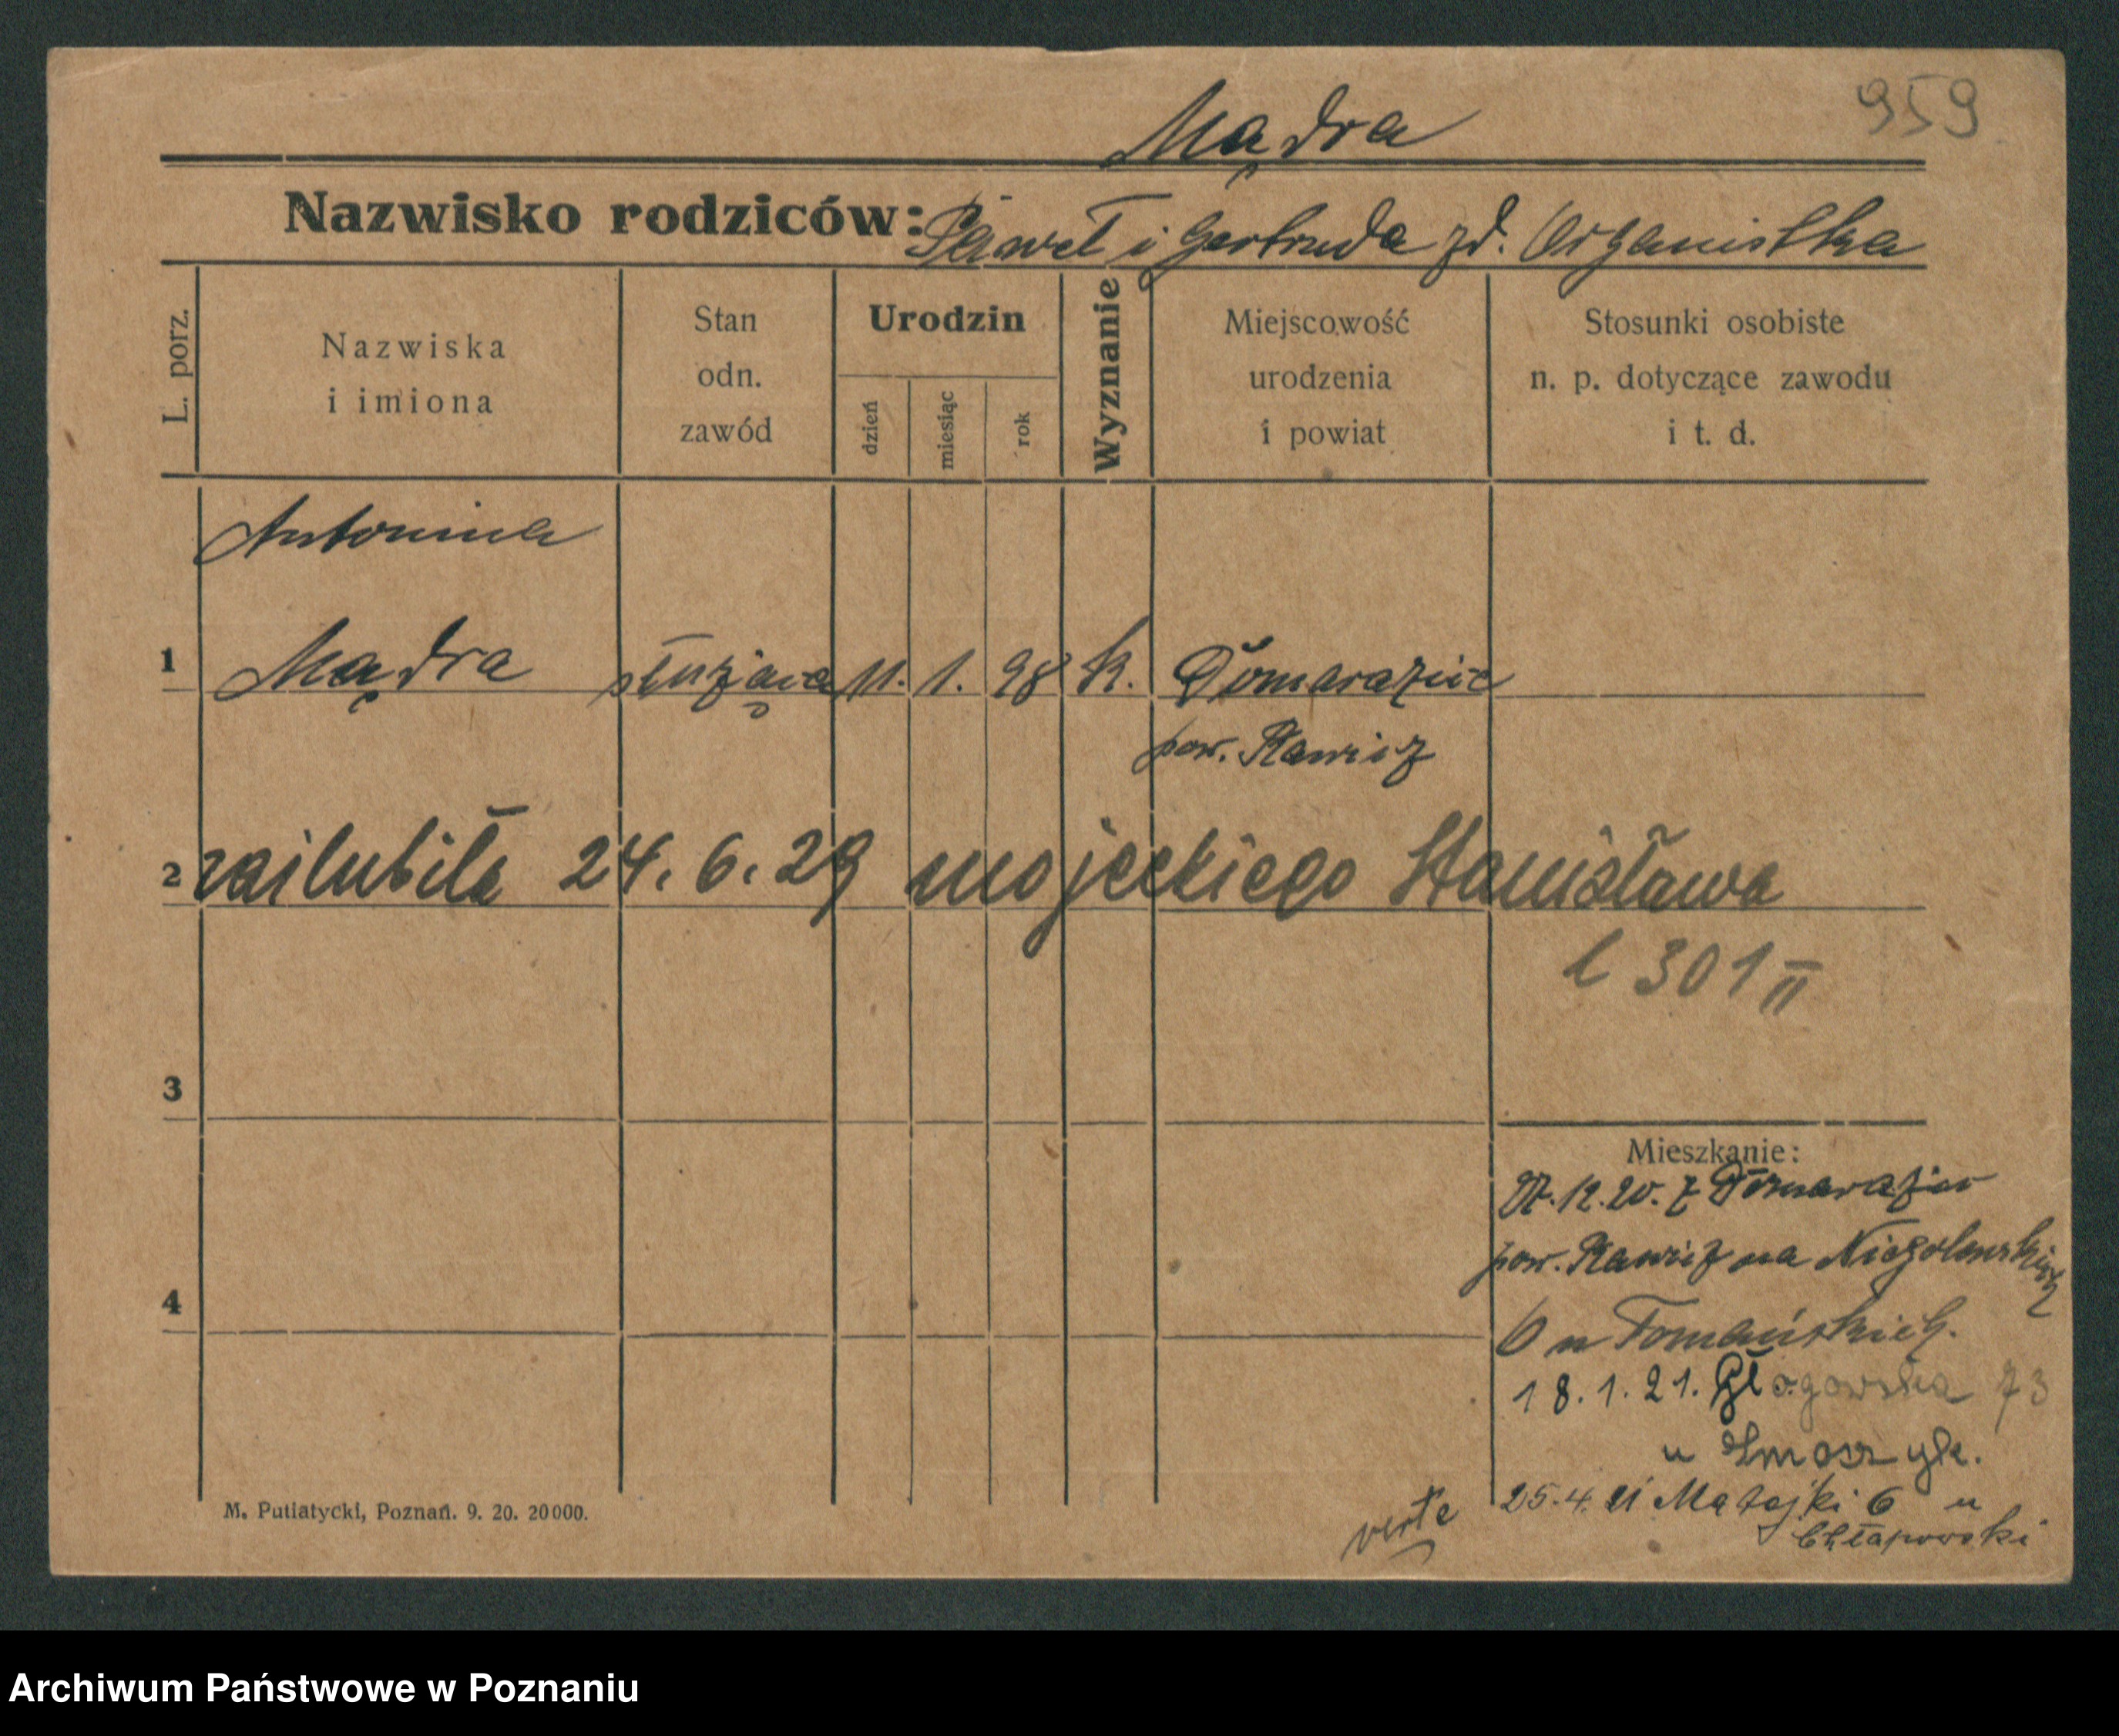 959
Mądra
Nazwisko rodziców: Paweł i Gertruda zd. Organistka
L. porz.
Nazwiska
i imiona
Stan
odn.
zawód
Urodzin
dzień
miesiąc
rok
Wyznanie
Miejscowość
urodzenia
i powiat
Stosunki osobiste
n. p. dotyczące zawodu
i t. d.
Antonina
1 Mądra służąca 11. 1. 98 k.
pow. Rawicz
2 zaślubiła 24.6.29 Mojeckiego Stanisława
l 301 II
3
Mieszkanie:
12.20. z
pow. Rawicz na Niegolewskich
4
6 u Tomańskich.
18.1.21. Głogowska 73
u
25.4.21 Matejki 6 u
Chłapowski
verte
M. Putiatycki, Poznań. 9. 20. 20000.
Archiwum Państwowe w Poznaniu